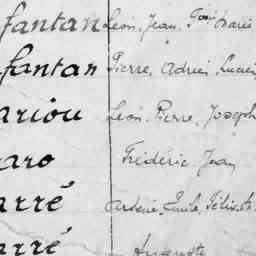 fantan Léon, Jean, Marie
fantan Pierre, Adrien, Lucien
ariou Léon, Pierre, Joseph
aro Frédéric, Jean
arré Arsène, Emile, Félix
arré Auguste